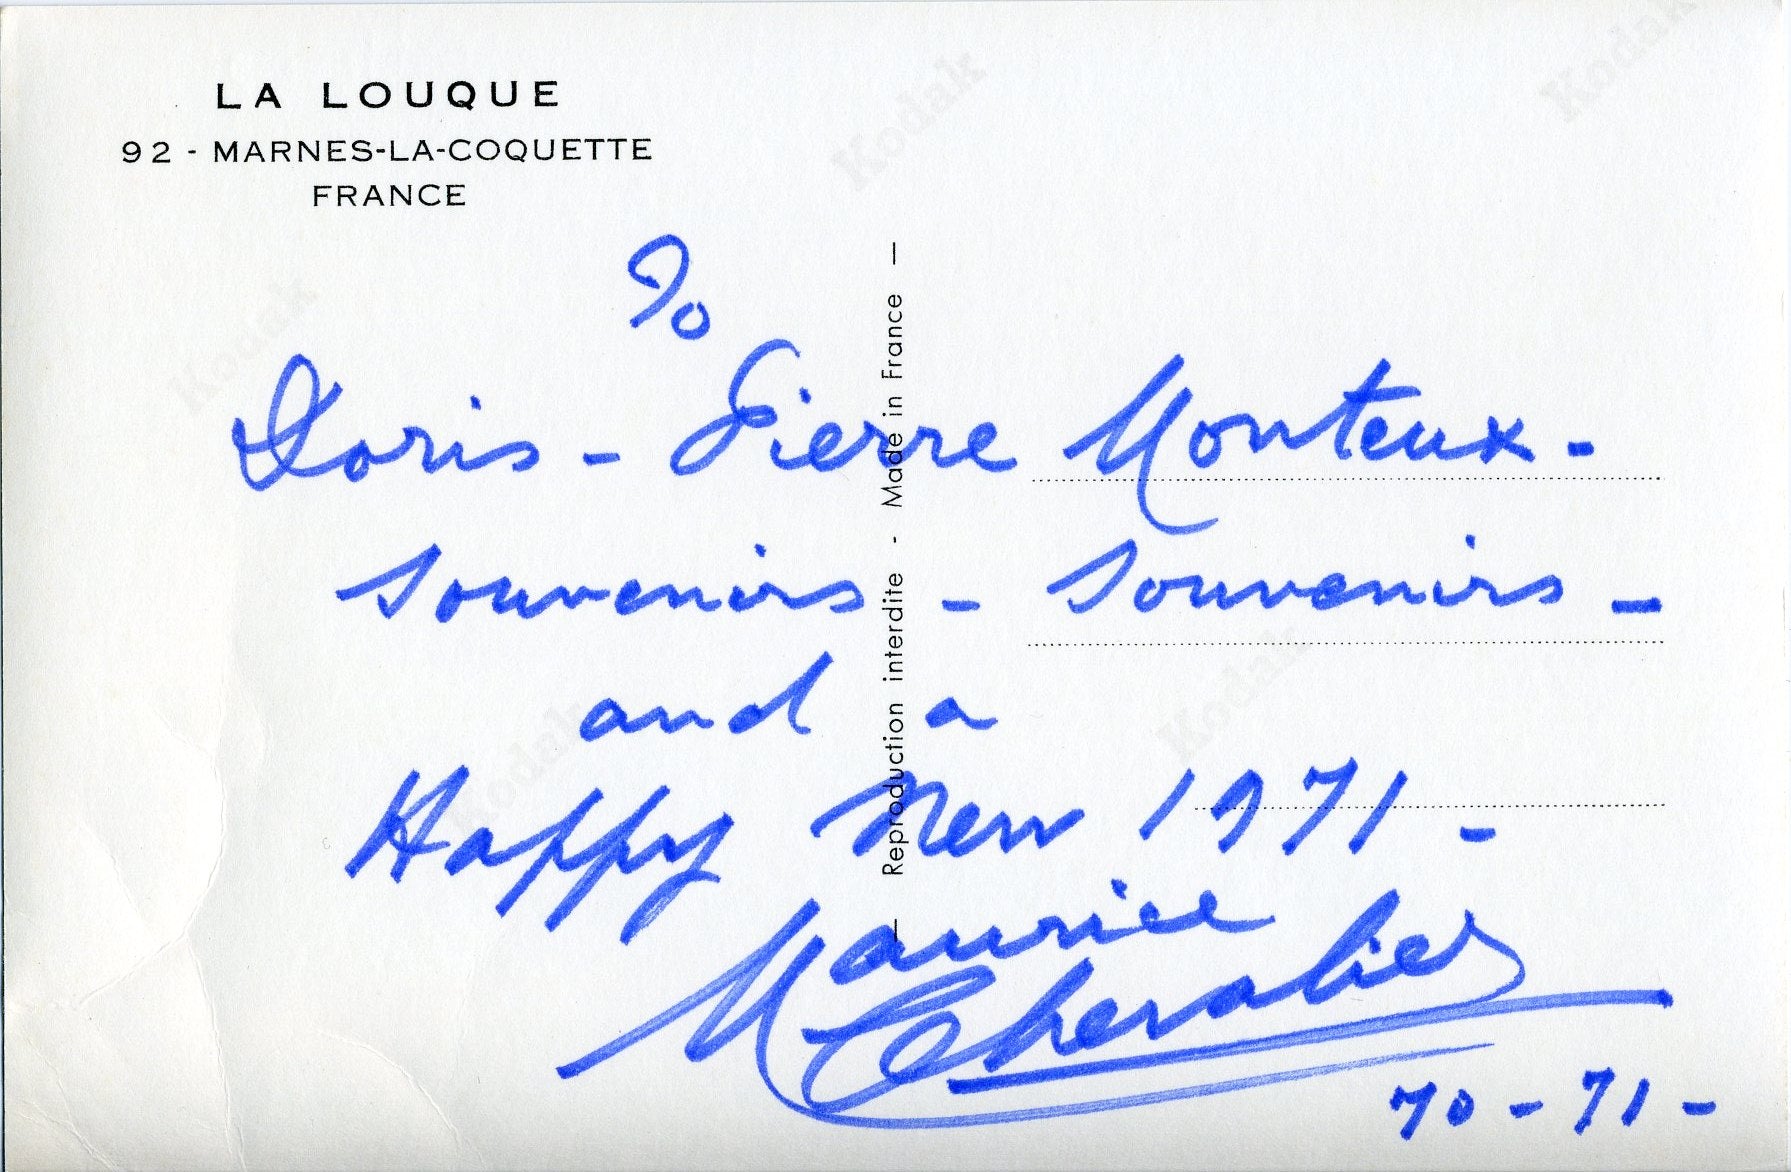 LA LOUQUE
92 - MARNES-LA-COQUETTE
FRANCE
To
Doris - Pierre Monteux -
souvenirs - souvenirs -
and a
Happy New 1971 -
Maurice
Chevalier
70 - 71 -
Reproduction interdite - Made in France
Kodak
Kodak
Kodak
Kodak
Kodak